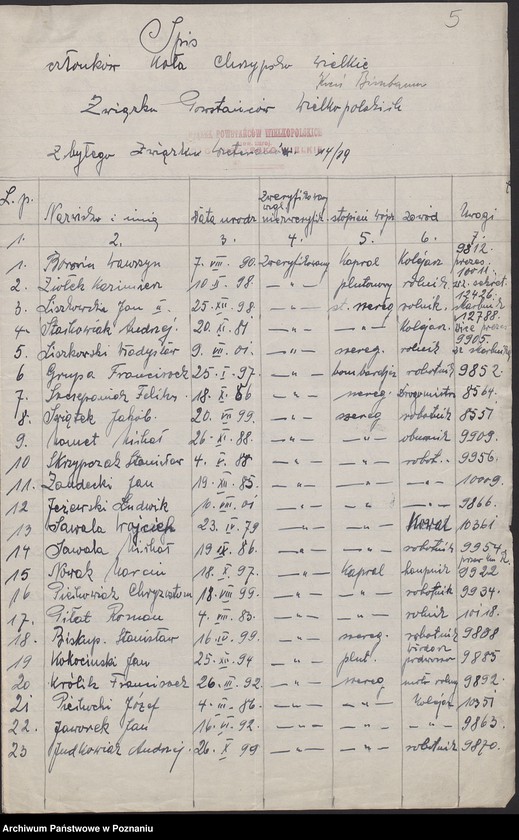 5
Spis
członków Koła Chrzypsko Wielkie
Związku Powstańców Wielkopolskich
POWSTAŃCÓW WIELKOPOLSKICH
z byłego Związku
L. p. Nazwisko i imię Data urodz. Zweryfikowany wzgl. niezweryfik. stopień wojs. zawód Uwagi
1. 2. 3. 4. 5. 6. 7.
1. Wawrzyn 7. VIII. 90. Zweryfikowany Kapral Kolejarz 9812. prezes
2. Kazimierz 10. II. 98. —"— plutonowy rolnik 10011.
3. Liszkowski Jan II. 25. XII. 98. —"— st. szereg. rolnik 12426. skarbnik
4. Stachowiak Andrzej. 20. XI. 81 —"— —"— Kolejarz. 12788.
5. Liszkowski Władysław 9. VII. 01. —"— szereg. rolnik 9905.
6 Grupa Franciszek 25. I. 97. —"— bombardjer robotnik 9852.
7. Szczepaniak Feliks 18. X. 86 —"— szereg. 8564.
8. Świątek Jakób. 20. VII 99. —"— szereg robotnik 8551
9. Michał 26. XI. 88. —"— —"— 9909.
10 Skrzypczak Stanisław 4. V. 88 —"— —"— robot. 9956.
11. Jan 19. XII. 85. —"— —"— —"— 10009.
12 Jeżewski Ludwik 10. VIII. 01 —"— —"— —"— 9866.
13 Sawala Wojciech 23. IV. 79 —"— —"— Kowal 10361
14 Sawala Michał 19 IX. 86. —"— —"— robotnik 9954.
15 Nowak Marcin 18. X. 97. —"— Kapral 9922
16 Piechowiak Chryzostom 18. VIII 99. —"— —"— robotnik 9934.
17. Giłat Roman 4. VIII. 83. —"— —"— rolnik 10118.
18. Biskup. Stanisław 16. IV. 99. —"— szereg. robotnik 9808
19 Kokociński Jan 25. XII. 94 —"— plut. 9885
20 Królik Franciszek 26. III. 92. —"— szereg 9892.
21 Piechocki Józef 4. III. 86. —"— —"— Kolejarz 10351
22. Jaworek Jan 16. VI. 92. —"— —"— —"— 9863.
23 Judkowiak Andrzej. 26. X 99 —"— —"— robotnik 9870.
Archiwum Państwowe w Poznaniu